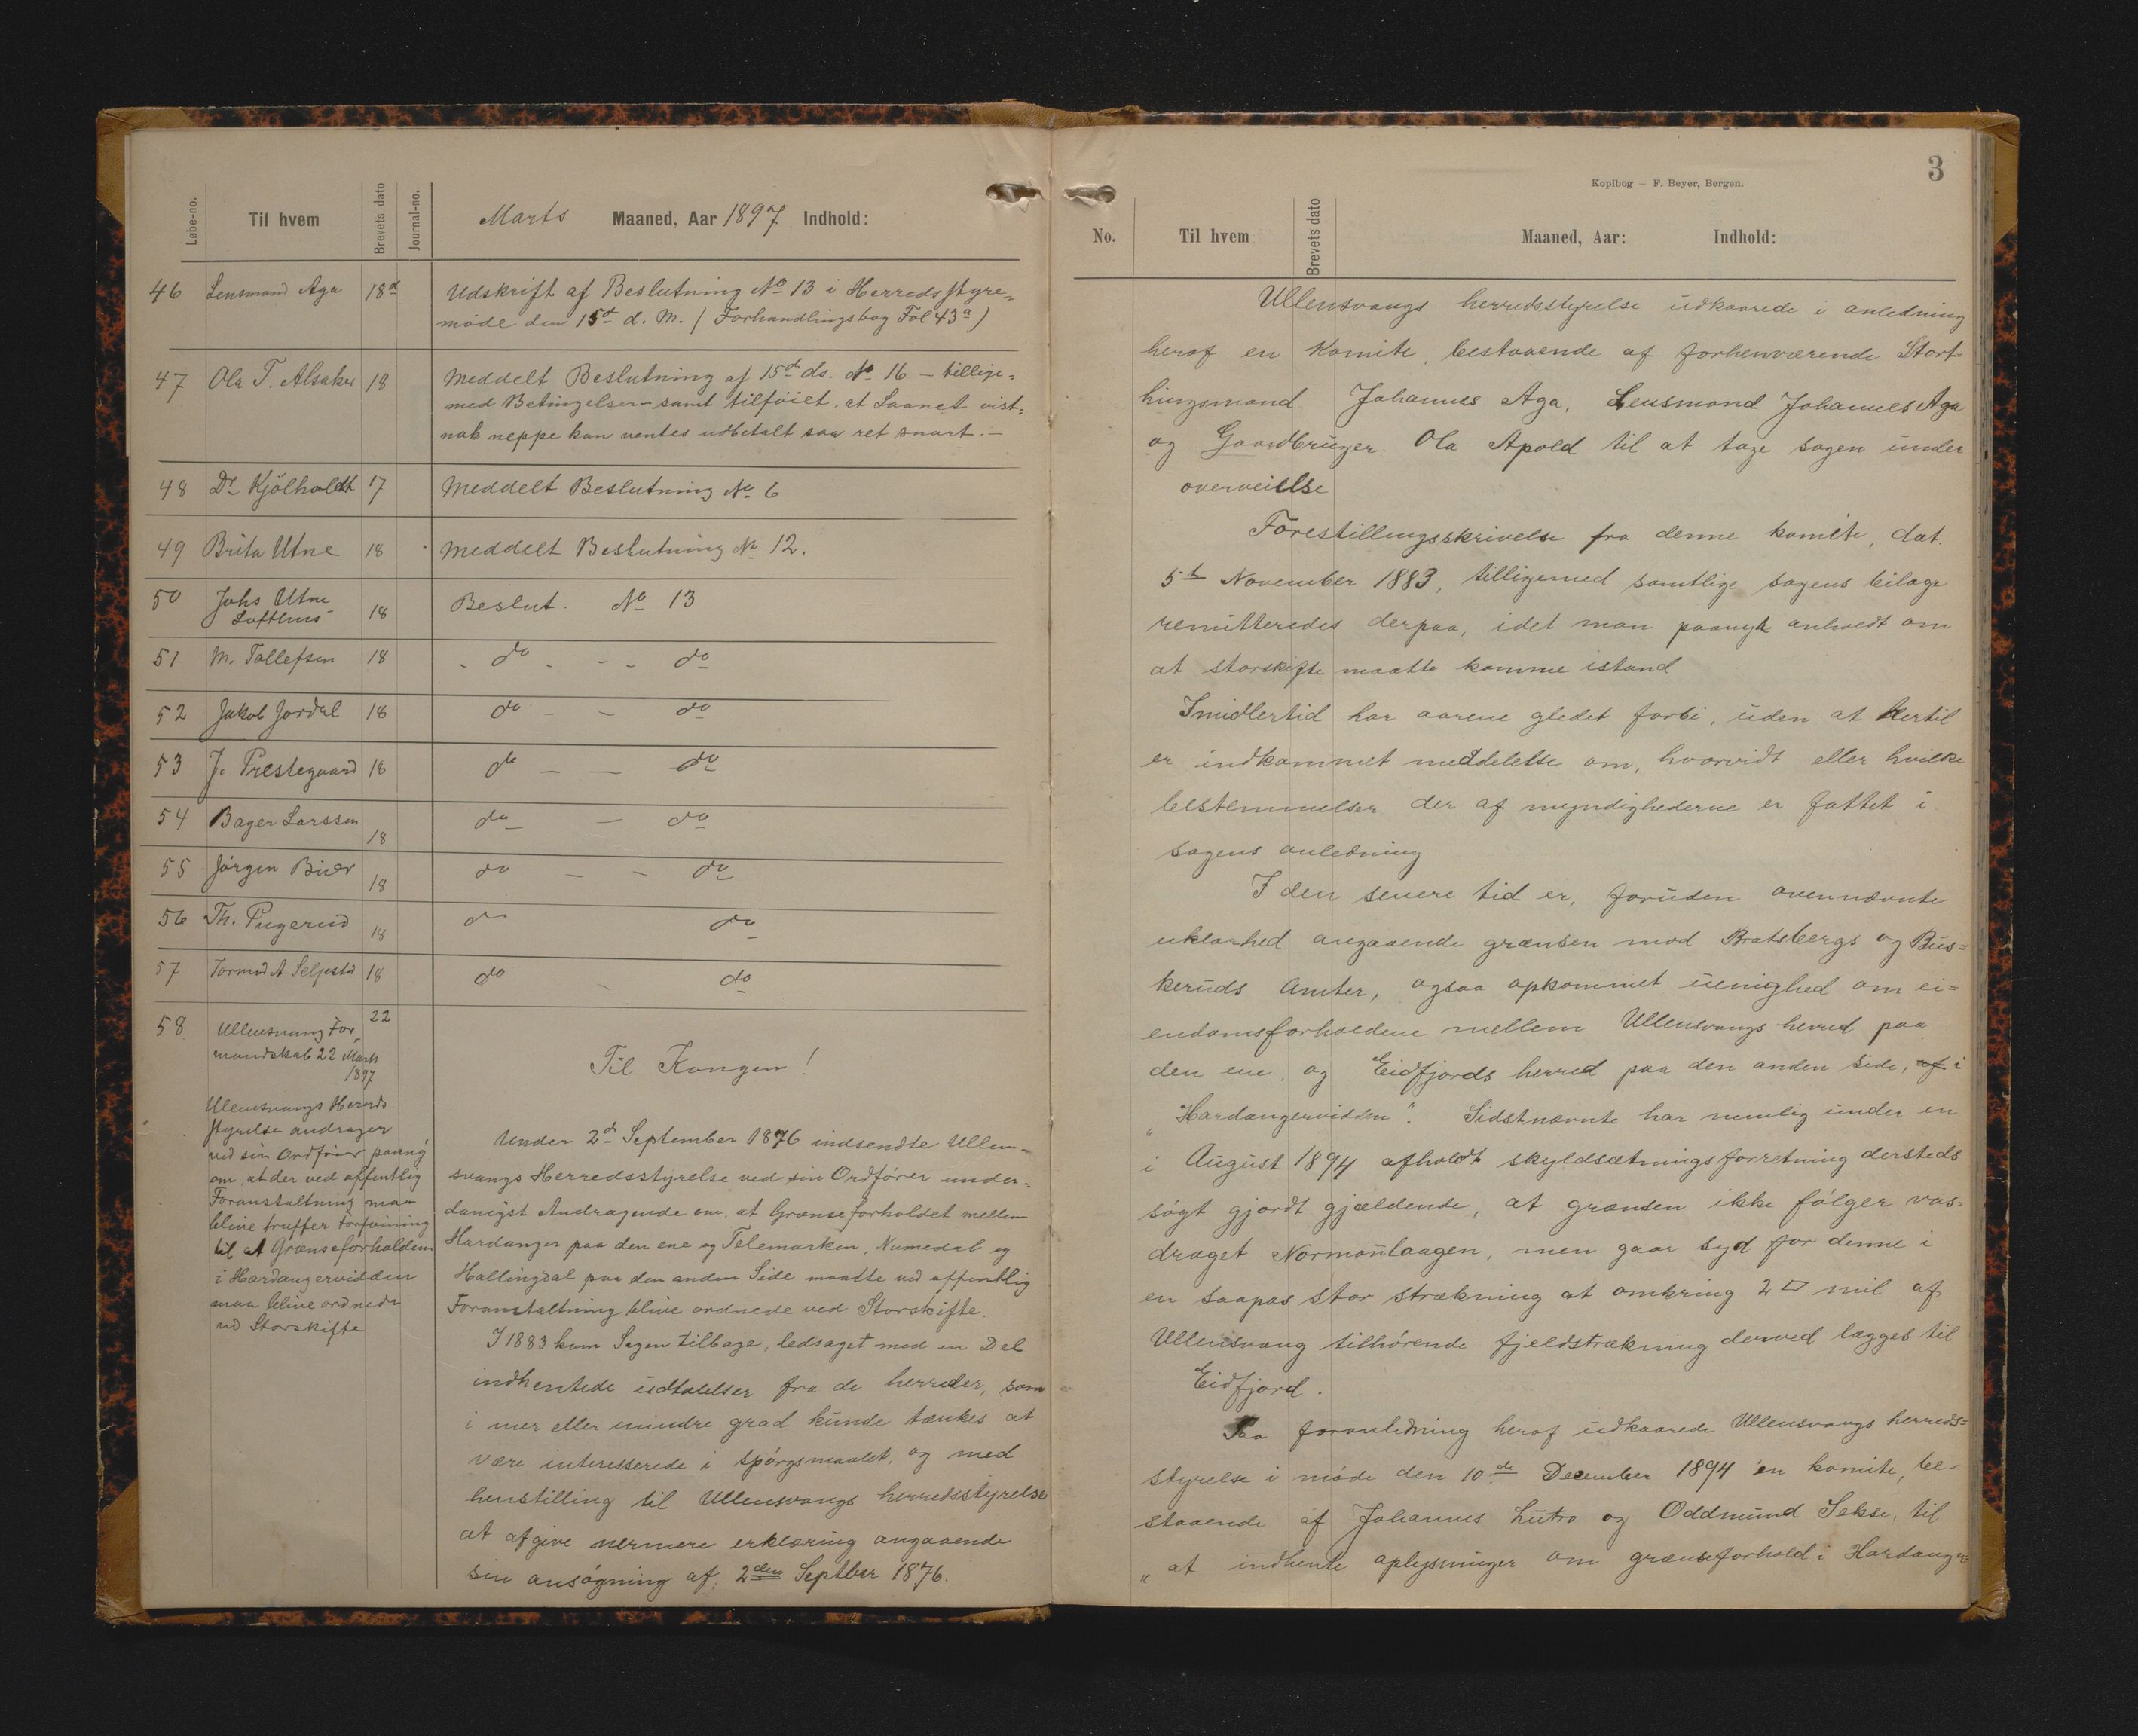 Løbe-no. Til hvem Brevets dato Journal-no. Marts Maaned, Aar 1897 Indhold:
46 Lensmand Aga 18d Udskrift af Beslutning No 13 i Herredsstyre-
møde den 15d d. M. (Forhandlingsbog Fol 43a)
47 Ola T. Alsaker 18 Meddelt Beslutning af 15d ds. No 16 – tillige-
med Betingelser – samt tilføiet, at Laanet vist-
nok neppe kan ventes udbetalt saa ret snart. –
48 Dr Kjölholdt 17 Meddelt Beslutning No 6
49 Brita Utne 18 Meddelt Beslutning No 12.
50 Johs Utne
Lofthus 18 Beslut. No 13
51 M. Tollefsen 18 do do
52 Jakob Jordal 18 do – – do
53 J. Prestegaard 18 do – – do
54 Bager Larssen 18 do – do
55 Jørgen Bier 18 do – – do
56 Th. Pugerud 18 do do
57 Tormod A Seljestd 18 do do
58 Ullensvang For 22
mandskab 22 Marts
1897
Ulensvangs Herreds
styrelse andrager
ved sin Ordfører paany
om, at der ved offentlig
Foranstaltning maa
blive truffer
til at Grænseforholdene
i Hardangervidden
maa blive ordnede
ved Storskifte
Til Kongen!
Under 2d September 1876 indsendte Ullen-
svangs Herredsstyrelse ved sin Ordfører under-
danigst Andragende om, at Grænseforholdet mellem
Hardanger paa den ene og Telemarken, Numedal og
Hallingdal paa den anden Side maatte ved offentlig
Foranstaltning blive ordnede ved Storskifte.
I 1883 kom Sagen tilbage, ledsaget med en Del
indhentede udtalelser fra de herreder, som
i mer eller mindre grad kunde tænkes at
være interesserede i spørgsmaalet, og med
henstilling til Ullensvangs herredsstyrelse
at afgive nermere erklæring angaaende
sin ansøgning af, 2den Septber 1876.
3
Kopibog – F. Beyer, Bergen.
No. Til hvem Brevets dato Maaned, Aar: Indhold:
Ullensvangs herredsstyrelse udkaarede i anledning
heraf en Komite, bestaaende af forhenværende Stort
hingsmand Johannes Aga, Lensmand Johannes Aga
og Gaardbruger Ola Apold til at tage sagen under
overveielse
Forestillingsskrivelse fra denne komite, dat.
5te November 1883, tilligemed samtlige sagens bilage
remitteredes derpaa, idet man paanyt anholdt om
at storskifte maatte komme istand
Imidlertid har aarene gledet forbi, uden at hertil
er indkommet meddelelse om, hvorvidt eller hvilke
bestemmelser der af myndighederne er fattet i
sagens anledning
I den senere tid er, foruden ovennævnte
uklarhed angaaende grænsen mod Bratsbergs og Bus=
keruds Amter, ogsaa opkommet uenighed om ei=
endomsforholdene mellem Ullensvangs herred paa
den ene, og Eidfjords herred paa den anden side, af i
„Hardangervidden". Sidstnævnte har nemlig under en
i August 1894 afholdt skyldsætningsforretning dersteds
søgt gjordt gjældende, at grænsen ikke følger vas-
draget Normanlaagen, men gaar syd for denne i
en saapas stor strækning at omkring 2 □ mil af
Ullensvang tilhørende fjeldstrækning derved lægges til
Eidfjord.
Paa foranledning heraf udkaarede Ullensvangs herreds=
styrelse i møde den 10de December 1894 en komite, be-
staaende af Johannes Lutro og Oddmund Sekse, til
„at indhente oplysninger om grænseforhold i Hardanger-